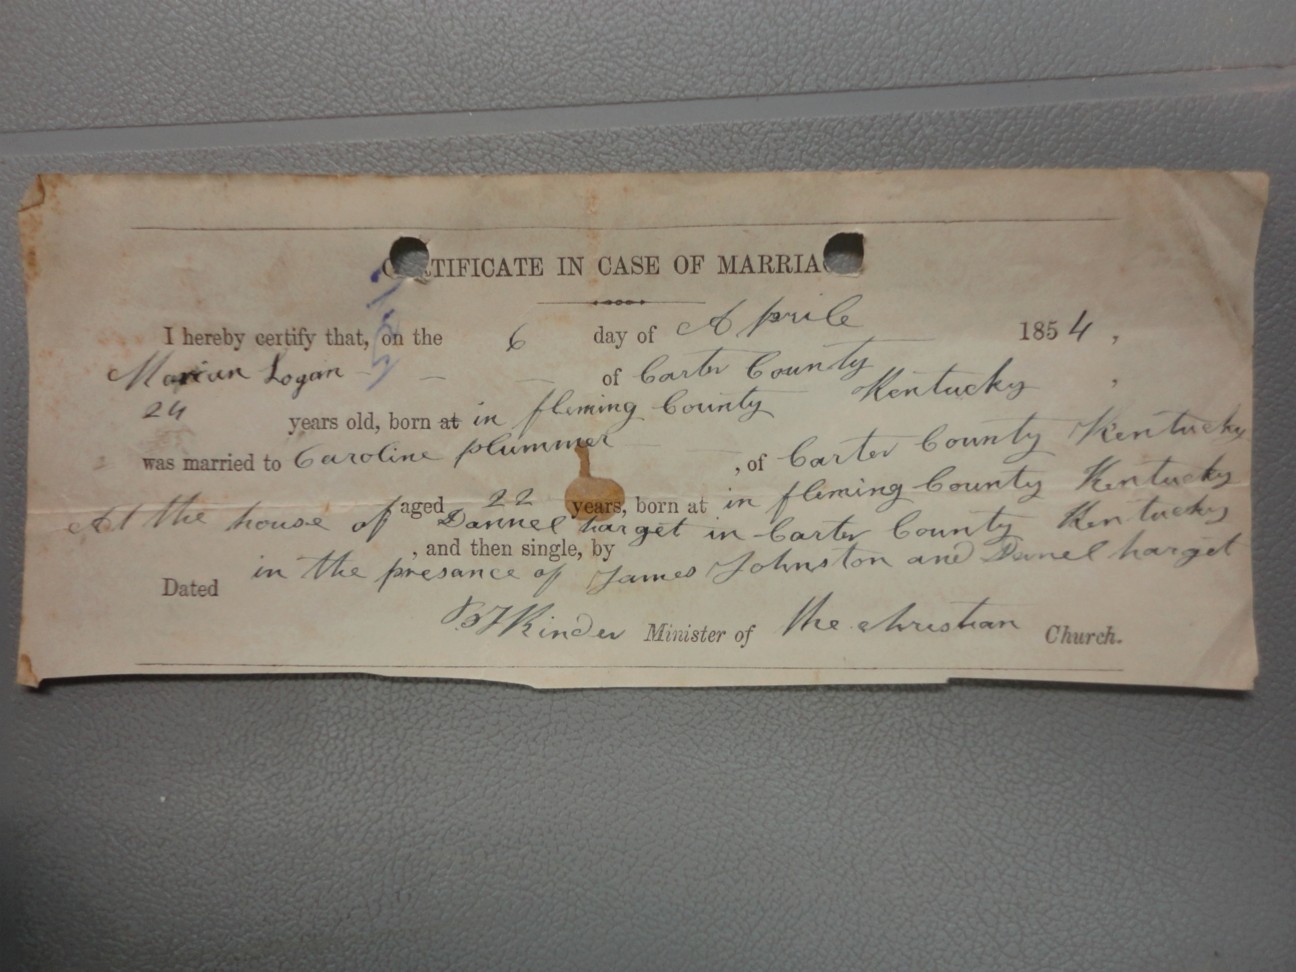 CERTIFICATE IN CASE OF MARRIAGE
I hereby certify that, on the 6 day of Aprile 1854,
Marian Logan of Carter County
24 years old, born at in fleming County Kentucky,
was married to Caroline plummer, of Carter County Kentucky
aged 22 years, born at in fleming County Kentucky
At the house of Dannel harget in Carter County Kentucky
, and then single, by
in the presance of James Johnston and Danel harget
Dated
BF Kinder Minister of the christian Church.